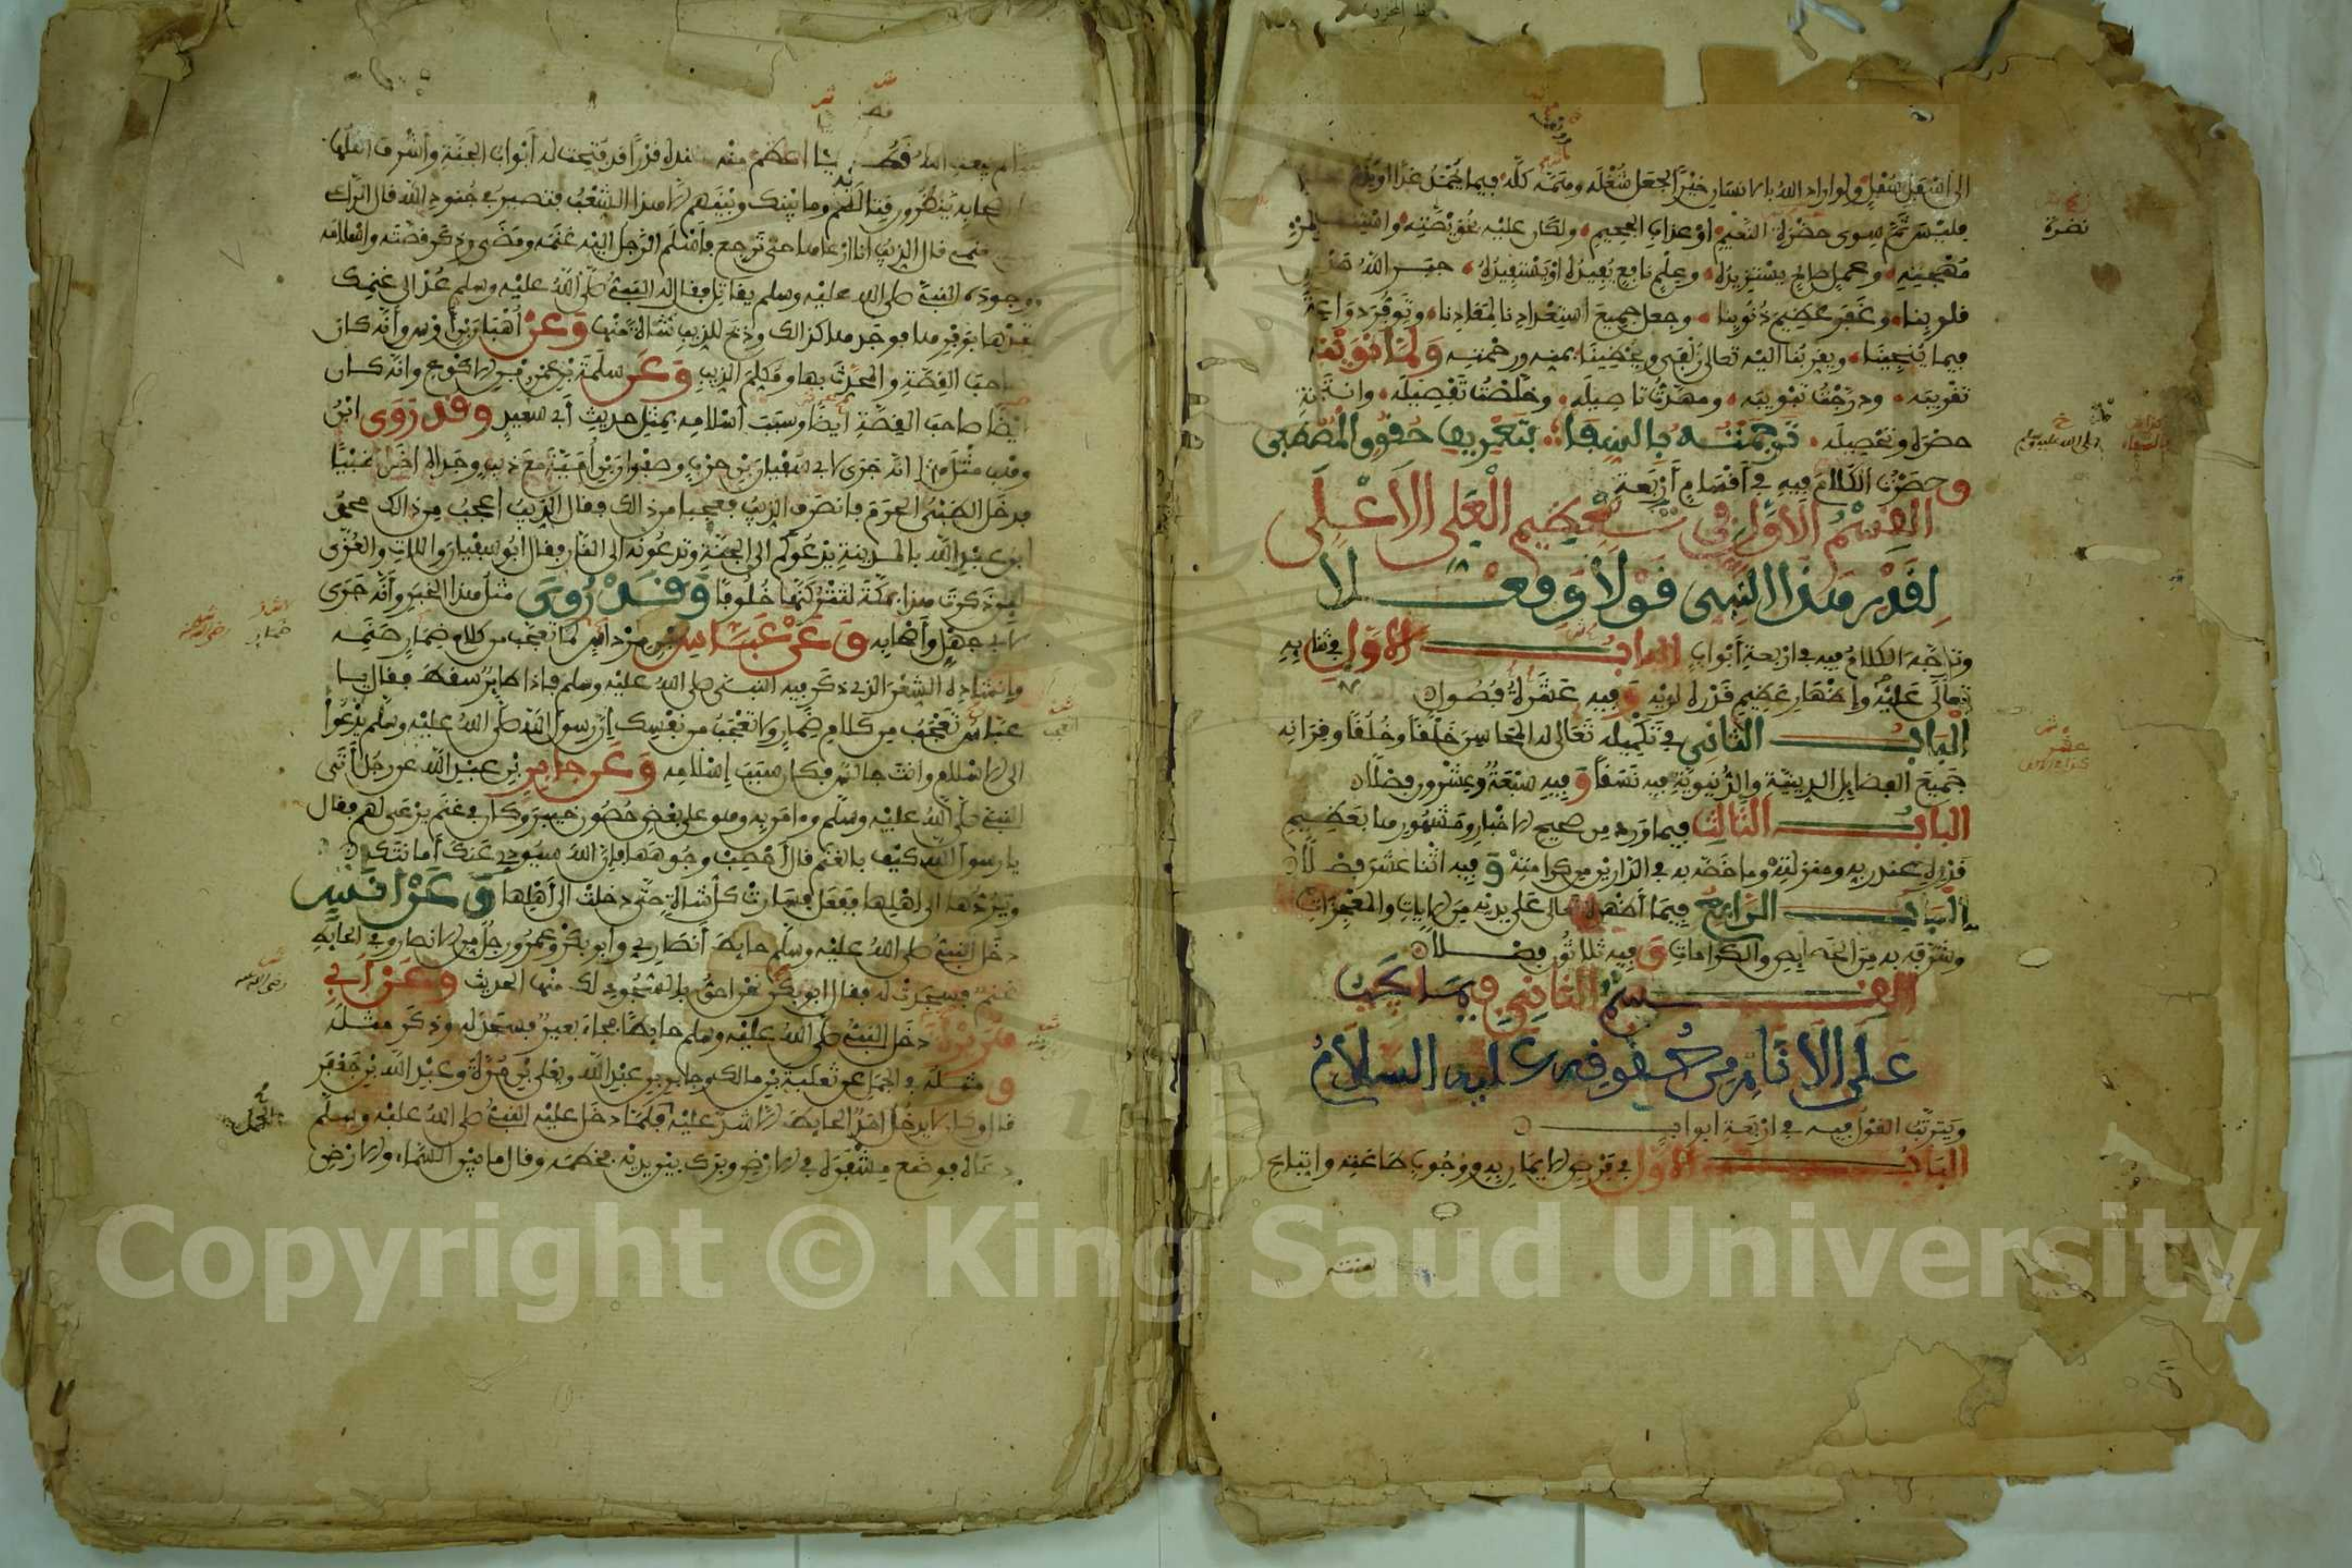 الى اسفل سفل ولو اراد الله بالانسان خيرا لجعل شغله وهمه كله فيما يحمد غدا او يذم
فليس ثم سوى حضرة النعيم او عذاب الجحيم ولكان عليه بخويصته واستنقاذ
مهجته وعمل صالح يستزيده وعلم نافع يفيده او يستفيده جبر الله صدع
قلوبنا وغفر عظيم ذنوبنا وجعل جميع استعدادنا لمعادنا وتوفر دواعينا
فيما ينجينا ويقربنا اليه تعالى زلفى ويحظينا بمنه ورحمته ولما نويت
تقريبه ودرجت تبويبه ومهدت تاصيله وخلصت تفصيله وانتحيت
حصره وتحصيله ترجمته بالشفا بتعريف حقوق المصطفى
وحصرت الكلام فيه في أقسام أربعة
القسم الأول في تعظيم العلي الأعلى
لقدر هذا النبي قولا وفعلا
وتوجه الكلام فيه في اربعة أبواب الباب الأول في ثنائه
تعالى عليه وإظهار عظيم قدره لديه وفيه عشرة فصول
الباب الثاني في تكميله تعالى له المحاسن خلقا وخلقا وقرانه
جميع الفضايل الدينية والدنيوية فيه نسقا وفيه سبعة وعشرون فصلا
الباب الثالث فيما ورد من صحيح الاخبار ومشهورها بعظيم
قدره عند ربه ومنزلته وما خصه به في الدارين من كرامته وفيه اثنا عشر فصلا
الباب الرابع فيما أظهره تعالى على يديه من الايات والمعجزات
وشرفه به من الخصايص والكرامات وفيه ثلاثون فصلا
القسم الثاني فيما يجب
على الأنام من حقوقه عليه السلام
ويترتب القول فيه في اربعة ابواب
الباب الأول في فرض الايمان به ووجوب طاعته واتباع
نضرة
لم يبعث الله قط نبيا اعظم منه عنده قدرا قد فتحت له أبواب الجنة وأشرف اهلها
على اصحابه ينظرون قتالهم وما بينك وبينهم الا هذا الشعب فتصير في جنود الله قال الراعي
من لي بغنمي قال الذيب انا ارعاها حتى ترجع فاسلم الرجل اليه غنمه ومضى وذكر قصته واسلامه
ووجوده النبي صلى الله عليه وسلم يقاتل فقال له النبي صلى الله عليه وسلم عد الى غنمك
تجدها بوفرها فوجدها كذالك وذبح للذيب شاة منها وعن أهبان بن أوس وأنه كان
صاحب القصة والمحدث بها ومكلم الذيب وعن سلمة بن عمرو بن الاكوع وانه كان
ايضا صاحب القصة أيضا وسبب اسلامه بمثل حديث أبي سعيد وقد روى ابن
وهب مثل هذا انه جرى لابي سفيان بن حرب وصفوان بن أمية مع ذيب وجداه اخذ ظبيا
فدخل الظبي الحرم فانصرف الذيب فعجبا من ذالك فقال الذيب أعجب من ذالك محمد
ابن عبد الله بالمدينة يدعوكم الى الجنة وتدعونه الى النار فقال ابو سفيان واللات والعزى
لين ذكرت هذا بمكة لتتركنها خلوفا وقد روي مثل هذا الخبر وأنه جرى
لابي جهل وأصحابه وعن عباس بن مرداس لما تعجب من كلام ضمار صنمه
وانشاده الشعر الذي ذكر فيه النبي صلى الله عليه وسلم فإذا طاير سقط فقال يا
عباس تعجب من كلام ضمار ولا تعجب من نفسك إن رسول الله صلى الله عليه وسلم يدعوا
الى الاسلام وانت جالس فكان سبب إسلامه وعن جابر بن عبد الله عن رجل أتى
النبي صلى الله عليه وسلم وءامن به وهو على بعض حصون خيبر وكان في غنم يرعى لهم فقال
يا رسول الله كيف بالغنم قال أحصب وجوهها فإن الله سيودي عنك أمانتك
ويردها الى اهلها ففعل فسارت كل شاة حتى دخلت الى أهلها وعن أنس
دخل النبي صلى الله عليه وسلم حايط أنصاري وابو بكر وعمر ورجل من الانصار وفي الحايط
غنم فسجدت له فقال ابو بكر نحن احق بالسجود لك منها الحديث وعن أبي
هريرة دخل النبي صلى الله عليه وسلم حايطا فجاء بعير فسجد له وذكر مثله
ومثله في الجمل عن ثعلبة بن مالك وجابر بن عبد الله ويعلى بن مرة وعبد الله بن جعفر
قال وكان لا يدخل احد الحايط الا شد عليه فلما دخل عليه النبي صلى الله عليه وسلم
دعاه فوضع مشفره في الارض وبرك بين يديه فخطمه وقال ما بين السماء والارض
Copyright © King Saud University